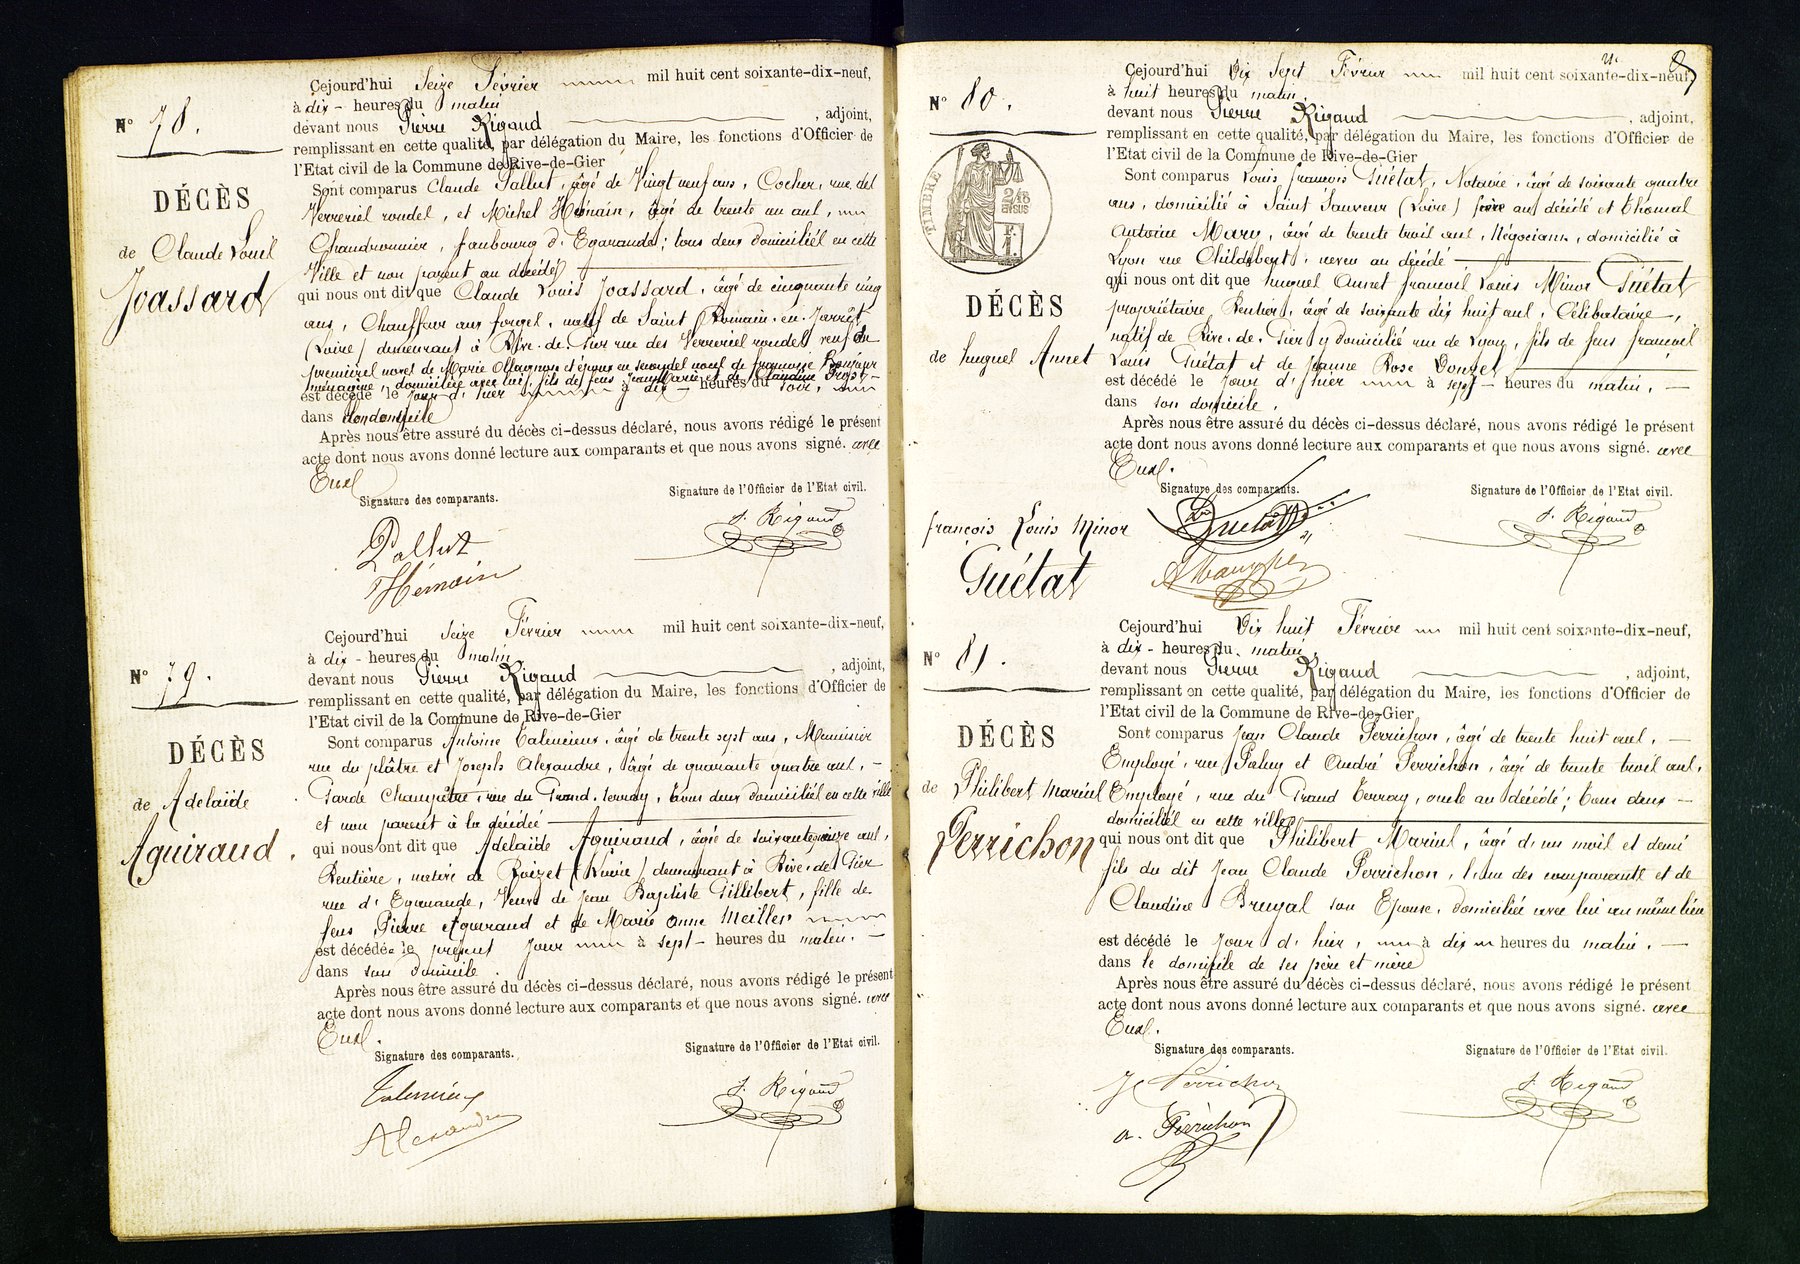 Cejourd'hui Seize Février mil huit cent soixante-dix-neuf,
à dix - heures du matin
devant nous Pierre Rigaud , adjoint,
remplissant en cette qualité, par délégation du Maire, les fonctions d'Officier de
l'Etat civil de la Commune de Rive-de-Gier
N° 78.
DÉCÈS
de Claude Louis
Joassard
Sont comparus Claude Pallut, âgé de Vingt neuf ans, Cocher, rue des
Verreries rondes, et Michel Hémain, âgé de trente un ans,
Chaudronnier, faubourg d'Egarande; tous deux domiciliés en cette
Ville et non parent au décédé
qui nous ont dit que Claude Louis Joassard, âgé de cinquante cinq
ans, Chauffeur aux forges, natif de Saint Romain-en-Jarrêt
(Loire) demeurant à Rive-de-Gier rue des Verreries rondes veuf en
premières noces de Marie Ollagnon et époux en secondes noces de françoise
ménagère, domiciliée avec lui, fils de feus Jean Marie et de Claudine
est décédé le jour d'hier à dix - heures du soir,
dans son domicile
Après nous être assuré du décès ci-dessus déclaré, nous avons rédigé le présent
acte dont nous avons donné lecture aux comparants et que nous avons signé. avec
Eux.
Signature des comparants. Signature de l'Officier de l'Etat civil.
Pallut P. Rigaud
Hémain
Cejourd'hui Seize Février mil huit cent soixante-dix-neuf,
à dix - heures du matin
devant nous Pierre Rigaud , adjoint,
remplissant en cette qualité, par délégation du Maire, les fonctions d'Officier de
l'Etat civil de la Commune de Rive-de-Gier
N° 79.
DÉCÈS
de Adelaïde
Aguiraud.
Sont comparus Antoine Talmieux, âgé de trente sept ans, Menuisier
rue du plâtre et Joseph Alexandre, âgé de quarante quatre ans, -
Garde Champêtre, rue du Grand-Terray, tous deux domiciliés en cette ville
et non parent à la décédée
qui nous ont dit que Adelaïde Aguiraud, âgée de soixante onze ans,
Rentière, native de (Loire) demeurant à Rive-de-Gier
rue d'Egarande, Veuve de Jean Baptiste Gillibert, fille de
feus Pierre Aguiraud et de Marie Anne Meiller
est décédée le présent jour à sept - heures du matin. -
dans son domicile.
Après nous être assuré du décès ci-dessus déclaré, nous avons rédigé le présent
acte dont nous avons donné lecture aux comparants et que nous avons signé. avec
Eux.
Signature des comparants. Signature de l'Officier de l'Etat civil.
Talmieux P. Rigaud
Alexandre
Cejourd'hui Dix Sept Février mil huit cent soixante-dix-neuf,
à huit heures du matin.
devant nous Pierre Rigaud , adjoint,
remplissant en cette qualité, par délégation du Maire, les fonctions d'Officier de
l'Etat civil de la Commune de Rive-de-Gier
N° 80.
TIMBRE
2/10
EN SUS
DÉCÈS
de hugues Annet
françois Louis Minor
Guétat
Sont comparus Louis françois Guétat, Notaire, âgé de soixante quatre
ans, domicilié à Saint Sauveur (Loire) frère au décédé et Thomas
Antoine Mary, âgé de trente trois ans, Négociant, domicilié à
Lyon rue Childebert, neveu au décédé
qui nous ont dit que hugues Annet françois Louis Minor Guétat
propriétaire Rentier, âgé de soixante dix huit ans, Célibataire,
natif de Rive-de-Gier y domicilié rue de Lyon, fils de feus françois
Louis Guétat et de Jeanne Rose Donzel
est décédé le jour d'hier à sept - heures du matin, -
dans son domicile.
Après nous être assuré du décès ci-dessus déclaré, nous avons rédigé le présent
acte dont nous avons donné lecture aux comparants et que nous avons signé. avec
Eux.
Signature des comparants. Signature de l'Officier de l'Etat civil.
Guétat P. Rigaud
Cejourd'hui Dix huit Février mil huit cent soixante-dix-neuf,
à dix - heures du matin,
devant nous Pierre Rigaud , adjoint,
remplissant en cette qualité, par délégation du Maire, les fonctions d'Officier de
l'Etat civil de la Commune de Rive-de-Gier
N° 81.
DÉCÈS
de Philibert Marius
Perrichon
Sont comparus Jean Claude Perrichon, âgé de trente huit ans, -
Employé, rue Paluy et André Perrichon, âgé de trente trois ans,
Employé, rue du Grand Terray, oncle au décédé; tous deux -
domiciliés en cette ville
qui nous ont dit que Philibert Marius, âgé d'un mois et demi
fils du dit Jean Claude Perrichon, l'un des comparants et de
Claudine Bruyal son Epouse, domiciliée avec lui au même lieu
est décédé le jour d'hier, à dix heures du matin. -
dans le domicile de ses père et mère
Après nous être assuré du décès ci-dessus déclaré, nous avons rédigé le présent
acte dont nous avons donné lecture aux comparants et que nous avons signé. avec
Eux.
Signature des comparants. Signature de l'Officier de l'Etat civil.
JC Perrichon P. Rigaud
A. Perrichon